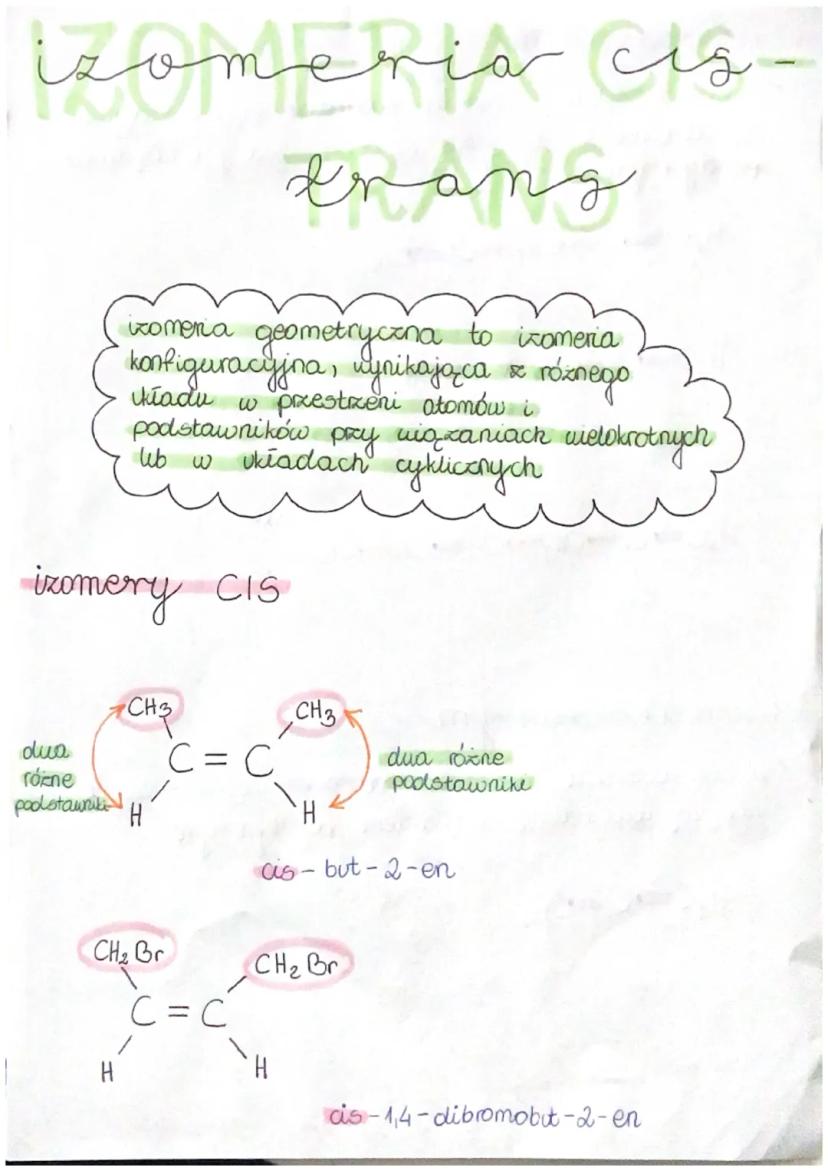 IZOMERIA CIS-
TRANS
izomeria cis-
trans
izomeria geometryczna to izomeria
konfiguracyjna, wynikająca z różnego
układu w przestrzeni atomów i
podstawników przy wiązaniach wielokrotnych
lub w układach cyklicznych
izomery CIS
CH3 CH3
dwa
różne
podstawniki
C = C
dwa różne
podstawniki
H H
cis - but - 2 - en
CH2 Br CH2 Br
C = C
H H
cis - 1,4 - dibromobut - 2 - en